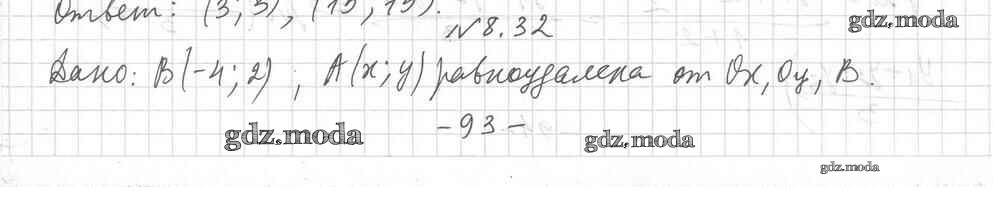 Ответ: (3; 3), (15; 15).
gdz.moda
№8.32
Дано: B(-4; 2), A(x; y) равноудалена от Ox, Oy, B.
-93-
gdz.moda
gdz.moda
gdz.moda